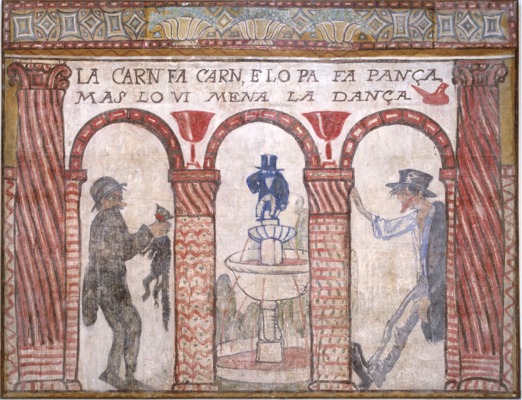 LA CARN FA CARN, E LO PA FA PANÇA
MAS LO VI MENA LA DANÇA